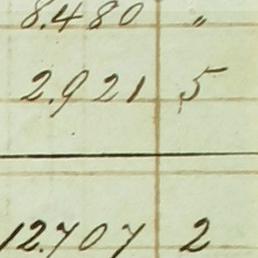 8.480 "
2.921 5
12.707 2